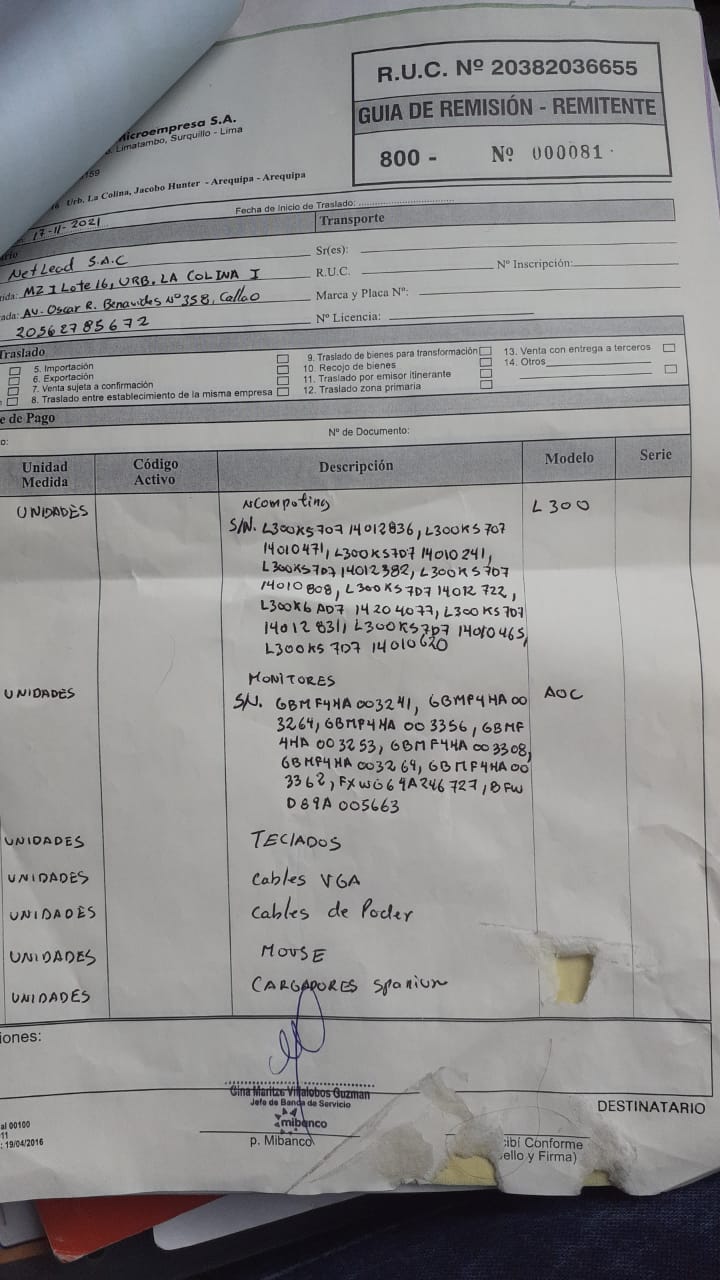 R.U.C. Nº 20382036655
GUIA DE REMISIÓN - REMITENTE
800 - Nº 000081
Microempresa S.A.
Limatambo, Surquillo - Lima
159
Urb. La Colina, Jacobo Hunter - Arequipa - Arequipa
17-11-2021
Fecha de Inicio de Traslado:
Transporte
NetLead S.A.C
Sr(es):
MZ I Lote 16, URB. LA COLINA I
R.U.C.
Nº Inscripción:
AV. Oscar R. Benavides Nº 358, Callao
Marca y Placa Nº:
20562785672
Nº Licencia:
Traslado
5. Importación
6. Exportación
7. Venta sujeta a confirmación
8. Traslado entre establecimiento de la misma empresa
9. Traslado de bienes para transformación
10. Recojo de bienes
11. Traslado por emisor itinerante
12. Traslado zona primaria
13. Venta con entrega a terceros
14. Otros
e de Pago
o:
Nº de Documento:
Unidad Medida Código Activo Descripción Modelo Serie
UNIDADES NComputing L300
S/N. L300KS707 14012836, L300KS707
14010471, L300KS7D7 14010241,
L300KS7D7 14012382, L300KS707
14010808, L300KS7D7 14012722,
L300K6AD7 14204077, L300KS7D7
14012831, L300KS7D7 14010465,
L300KS7D7 14010620
MONITORES
UNIDADES AOC
S/N. GBMF4HA003241, GBMP4HA00
3264, GBMP4HA003356, GBMF
4HA003253, GBMF4HA003308,
GBMP4HA003269, GBMF4HA00
3362, FXWG64A246727, BFW
D89A005663
UNIDADES TECLADOS
UNIDADES Cables VGA
UNIDADES Cables de Poder
UNIDADES MOUSE
UNIDADES CARGADORES Spanium
iones:
Gina Maritza Villalobos Guzman
Jefe de Banca de Servicio
mibanco
p. Mibanco
DESTINATARIO
cibí Conforme
ello y Firma)
al 00100
11
: 19/04/2016